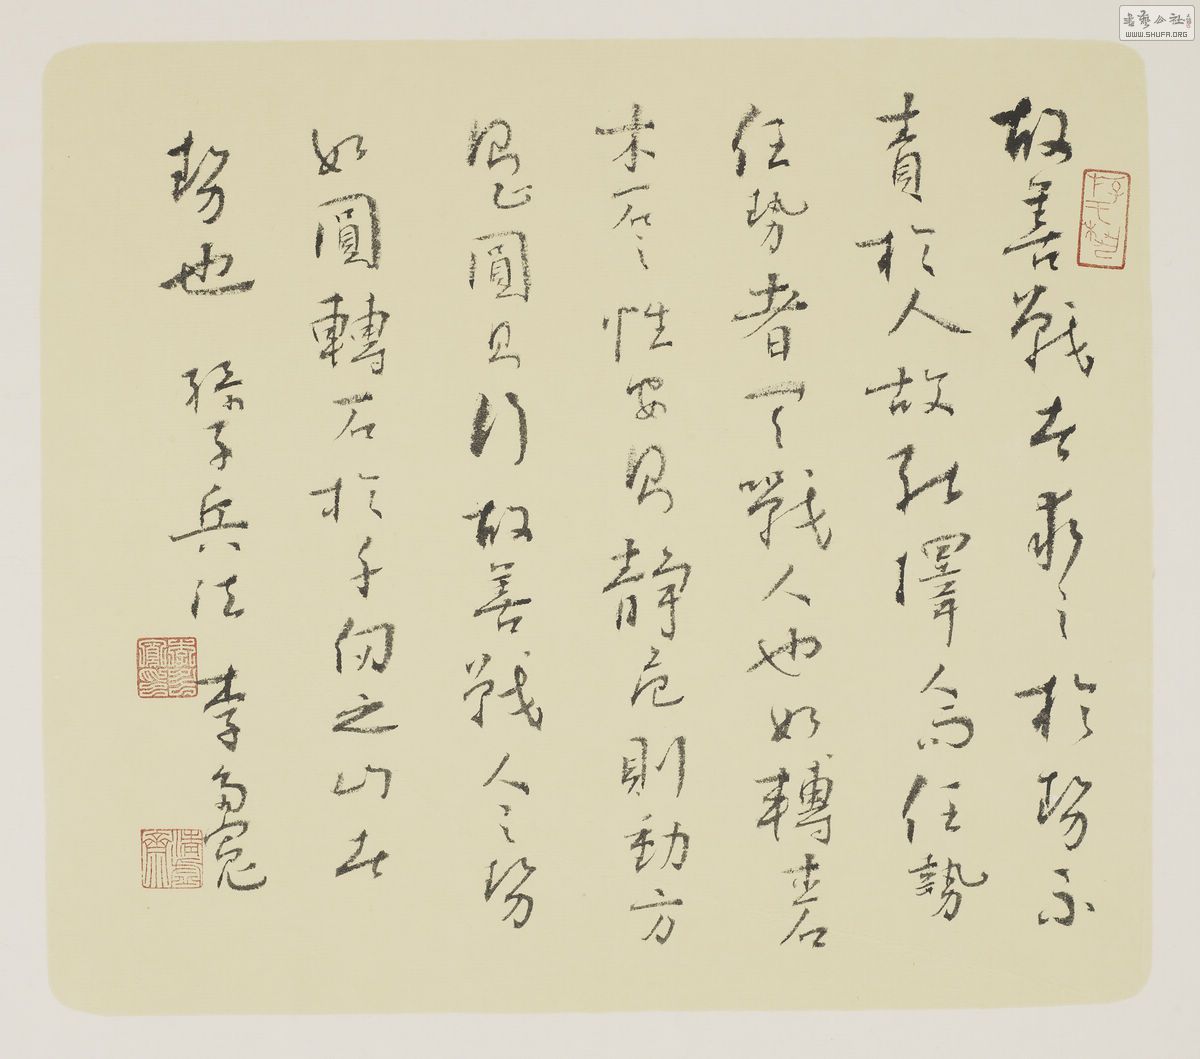 故善戰者求之於勢不
責於人故能擇人而任勢
任勢者其戰人也如轉木石
木石之性安則靜危則動方
則止圓則行故善戰人之勢
如圓轉石於千仞之山者
勢也 孫子兵法 李
書藝公社
WWW.SHUFA.ORG